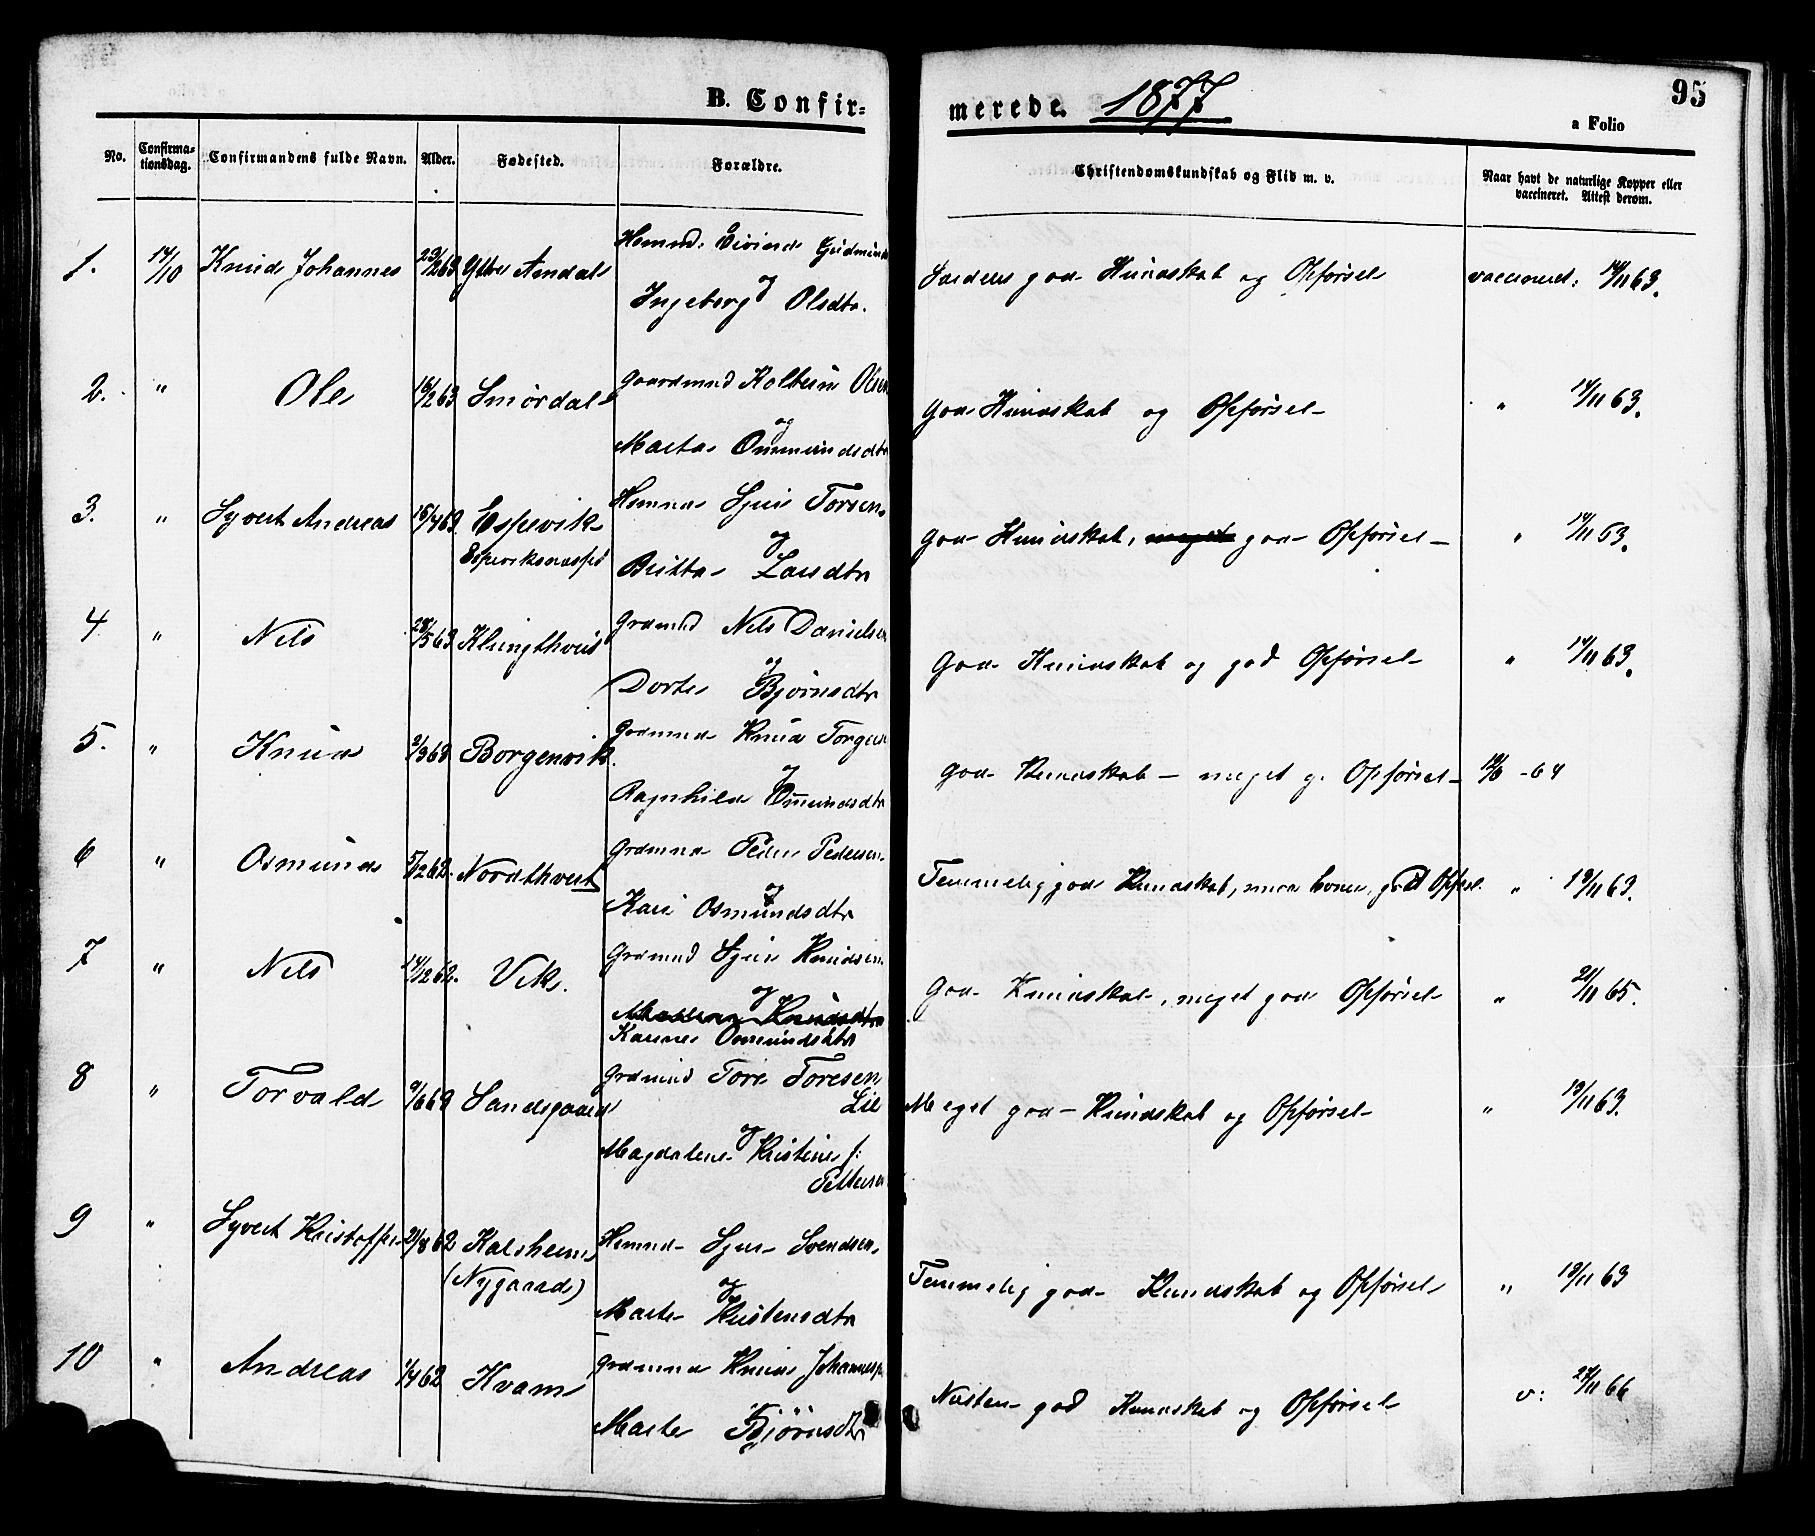 B. Confir=
merede. 1877
95
a Folio
No. Confirma-tionsdag. Confirmandens fulde Navn. Alder. Fødested. Forældre. Christendomskundskab og Flid m. v. Naar havt de naturlige Kopper eller vaccineret. Attest derom.
1. 14/10 Knud Johannes 23/2 63 Ytre Amdal Hsmnd: Eivind Gudmunds
og
Ingeborg Olsdtr. Særdeles god Kundskab og Opførsel vaccineret: 14/11 63.
2. " Ole 16/2 63 Smørdal Gaardmnd Kolbein Olsen
og
Marta Ommundsdtr God Kundskab og Opførsel " 14/11 63.
3. " Syvert Andreas 15/4 63. Espevik Hsmnd Sjur Torsen
Espeviksnæsset
og
Britta Larsdtr God Kundskab, meget god Opførsel " 14/11 63.
4 " Nels 28/5 63 Klungthveit Grdmnd Nels Danielsen
og
Dorte Bjørnsdtr God Kundskab og god Opførsel " 14/11 63.
5. " Knud 2/3 63 Borgenvik. Grdmnd Knud Torgers
og
Ragnhild Omundsdtr God Kundskab – meget g. Opførsel 12/6 -64
6 " Osmund 5/12 62. Nordthveit Grdmnd Peder Pedersen
og
Kari Osmundsdtr Temmelig god Kundskab, god Opførsel " 19/11 63.
7 " Nels 14/12 62. Vik. Grdmnd Sjur Knudsen
og
Knudsdtr
Karine Osmundsdtr God Kundskab, meget god Opførsel " 21/11 65.
8 " Torvald 9/6 63 Sandsgaard Grdmnd Tore Toresen
Lie
og
Magdalene Kristine f:
Pettersen Meget god Kundskab og Opførsel " 19/11 63.
9 " Syvert Kristoffer 21/8 62 Kalsheim Hsmnd Sjur Svendsen
(Nygaard)
og
Marte Kristensdtr Temmelig god Kundskab og Opførsel " 19/11 63
10 " Andreas 1/4 62 Kvam Grdmnd Knud Johannes
og
Marte Bjørnsdtr Næsten god Kundskab og Opførsel v: 27/11 66